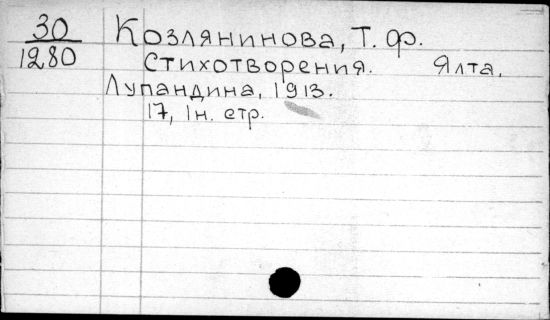 30 Козлянинова, Т. Ф.
1280 Стихотворения. Ялта,
Лупандина, 1913.
17, 1н. стр.